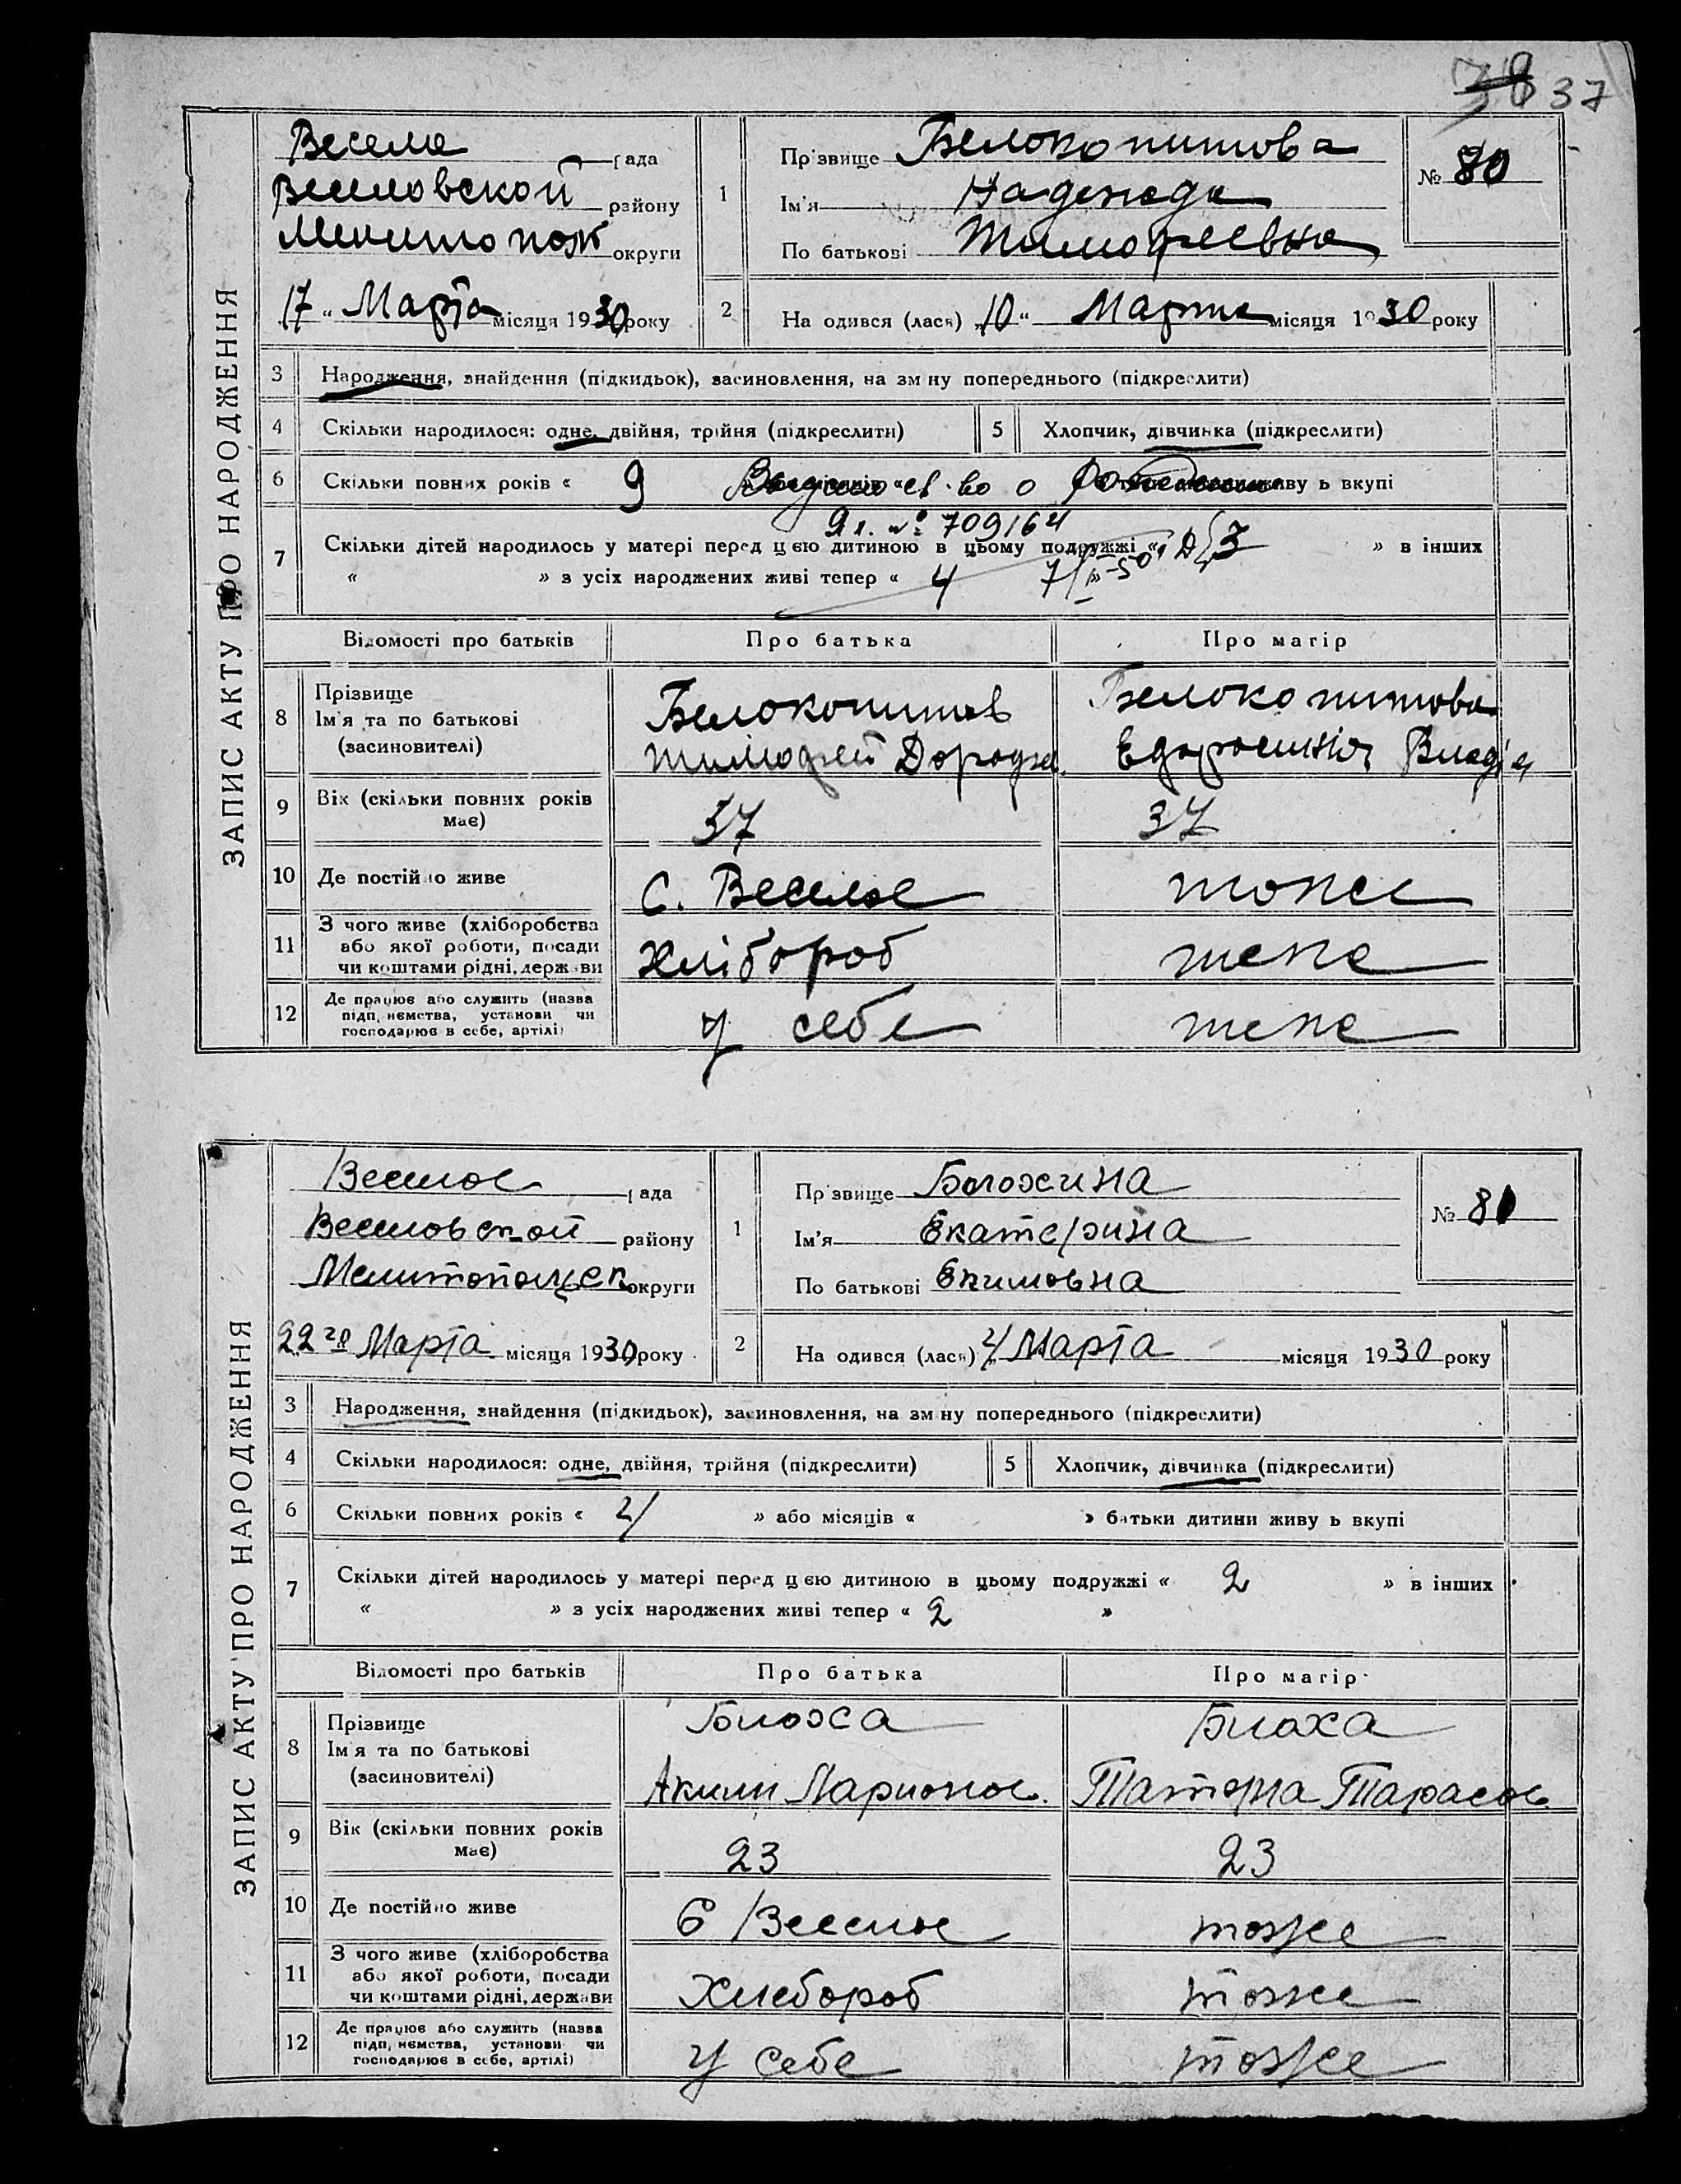 37
ЗАПИС АКТУ ПРО НАРОДЖЕННЯ
Веселе рада
Веселовской району
Мелитопол округи
17 " Марта місяця 1930 року
1
Прізвище Белокопитова
Ім'я Надежда
По батькові Тимофеевна
№ 80
2
На одився (лася) „10“ Марта місяця 1930 року
3 Народження, знайдення (підкидьок), засиновлення, на зм ну попереднього (підкреслити)
4 Скільки народилося: одне, двійня, трійня (підкреслити) 5 Хлопчик, дівчинка (підкреслити)
6 Скільки повних років « 9 Выдано св-во о рождении ь вкупі
ЯЛ. № 709164
7 Скільки дітей народилось у матері перед цією дитиною в цьому подружжі « » в інших
« » з усіх народжених живі тепер « 4
Відомості про батьків Про батька Про матір
8 Прізвище
Ім'я та по батькові
(засиновителі)
Белокопитов
Тимофей Дорофе.
Белокопитова
9 Вік (скільки повних років
має)
37
37
10 Де постійно живе С. Веселое тоже
11 З чого живе (хліборобства
або якої роботи, посади
чи коштами рідні, держави
Хлібороб
12 Де працює або служить (назва
підп. иємства, установи чи
господарює в себе, артілі)
у себе
ЗАПИС АКТУ ПРО НАРОДЖЕННЯ
Веселое рада
Веселовской району
Мелитопольск округи
22го Марта місяця 1930 року
1
Прізвище Блохина
Ім'я Екатерина
По батькові Екимовна
№ 81
2
На одився (лася) Марта місяця 1930 року
3 Народження, знайдення (підкидьок), засиновлення, на зм ну попереднього (підкреслити)
4 Скільки народилося: одне, двійня, трійня (підкреслити) 5 Хлопчик, дівчинка (підкреслити)
6 Скільки повних років « 4 » або місяців « » батьки дитини живу ь вкупі
7 Скільки дітей народилось у матері перед цією дитиною в цьому подружжі « 2 » в інших
« » з усіх народжених живі тепер « 2 »
Відомості про батьків Про батька Про матір
8 Прізвище
Ім'я та по батькові
(засиновителі)
Блоха
Аким Ларионов.
Блоха
Татьяна Тарасов.
9 Вік (скільки повних років
має)
23
23
10 Де постійно живе С Веселое тоже
11 З чого живе (хліборобства
або якої роботи, посади
чи коштами рідні, держави
Хлебороб
тоже
12 Де працює або служить (назва
підп. иємства, установи чи
господарює в себе, артілі)
у себе
тоже